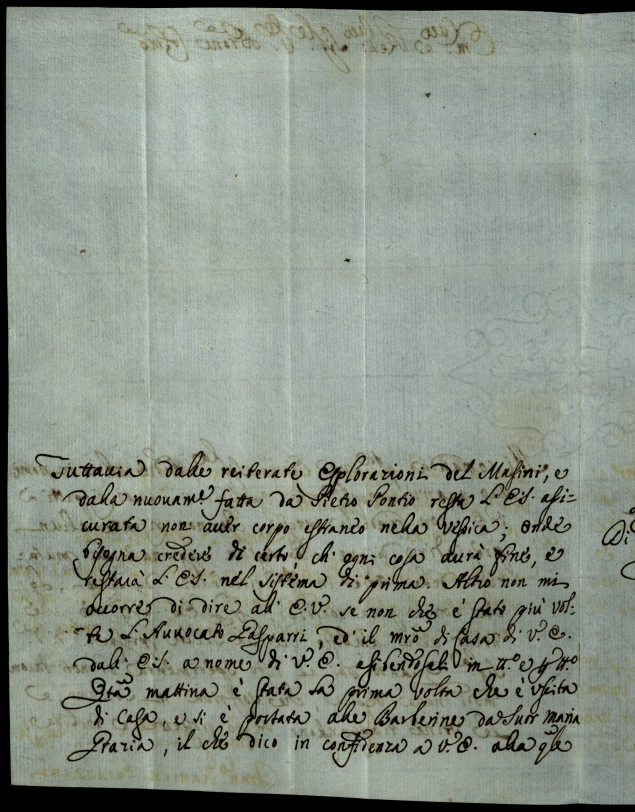 Tuttavia dalle reiterate Esplorazioni del Masini, e
dalla nuovam.e fatta da Pietro Pontio resta L'E.S. assi-
curata non aver corpo estraneo nella Vessica; onde
bisogna credere di certo ch'ogni cosa aurà fine, e
restarà L'E.S. nel sistema di prima. Altro non mi
occorre di dire all'E.V. se non che è stato più vol-
te L'Auuocato Gasparri, ed il mro di Casa di V.E.
dall'E.S. a nome di V.E. esibendoseli in tt.o e p tt.o
Qta mattina è stata la prima volta che è uscita
di Casa, e si è portata alle Barberine da Suor Maria
Grazia, il che dico in confidenza a V.E. alla qle
Di